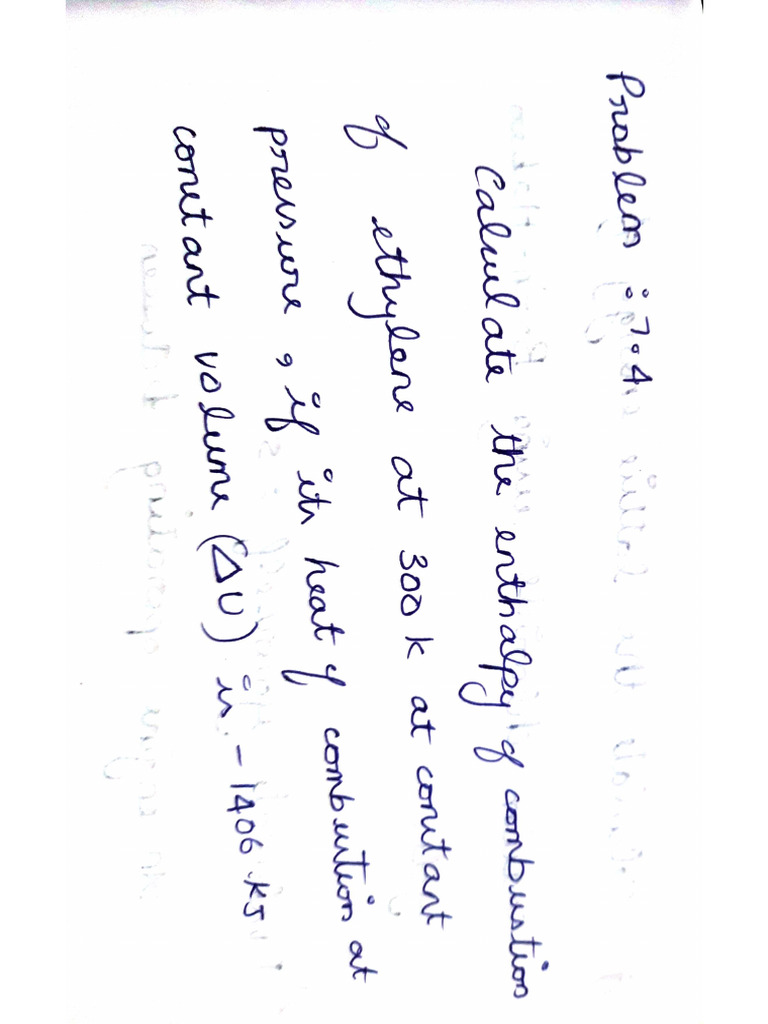 Problem : 7.4
Calculate the enthalpy of combustion
of ethylene at 300 K at constant
pressure, if its heat of combustion at
constant volume (ΔU) is -1406 KJ